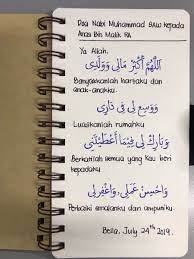 Doa Nabi Muhammad SAW kepada
Anas Bin Malik RA
Ya Allah,
اَللّٰهُمَّ أَكْثِرْ مَالِى وَوَلَدِى
Banyakkanlah hartaku dan
anak-anakku.
وَوَسِّعْ لِى فِى دَارِى
Luaskanlah rumahku
وَبَارِكْ لِى فِيمَا أَعْطَيْتَنِى
Berkatilah semua yang Kau beri
kepadaku
وَاحْسِنْ عَمَلِى وَاغْفِرْلِى
Perbaiki amalanku dan ampuniku
July 24th 2019.